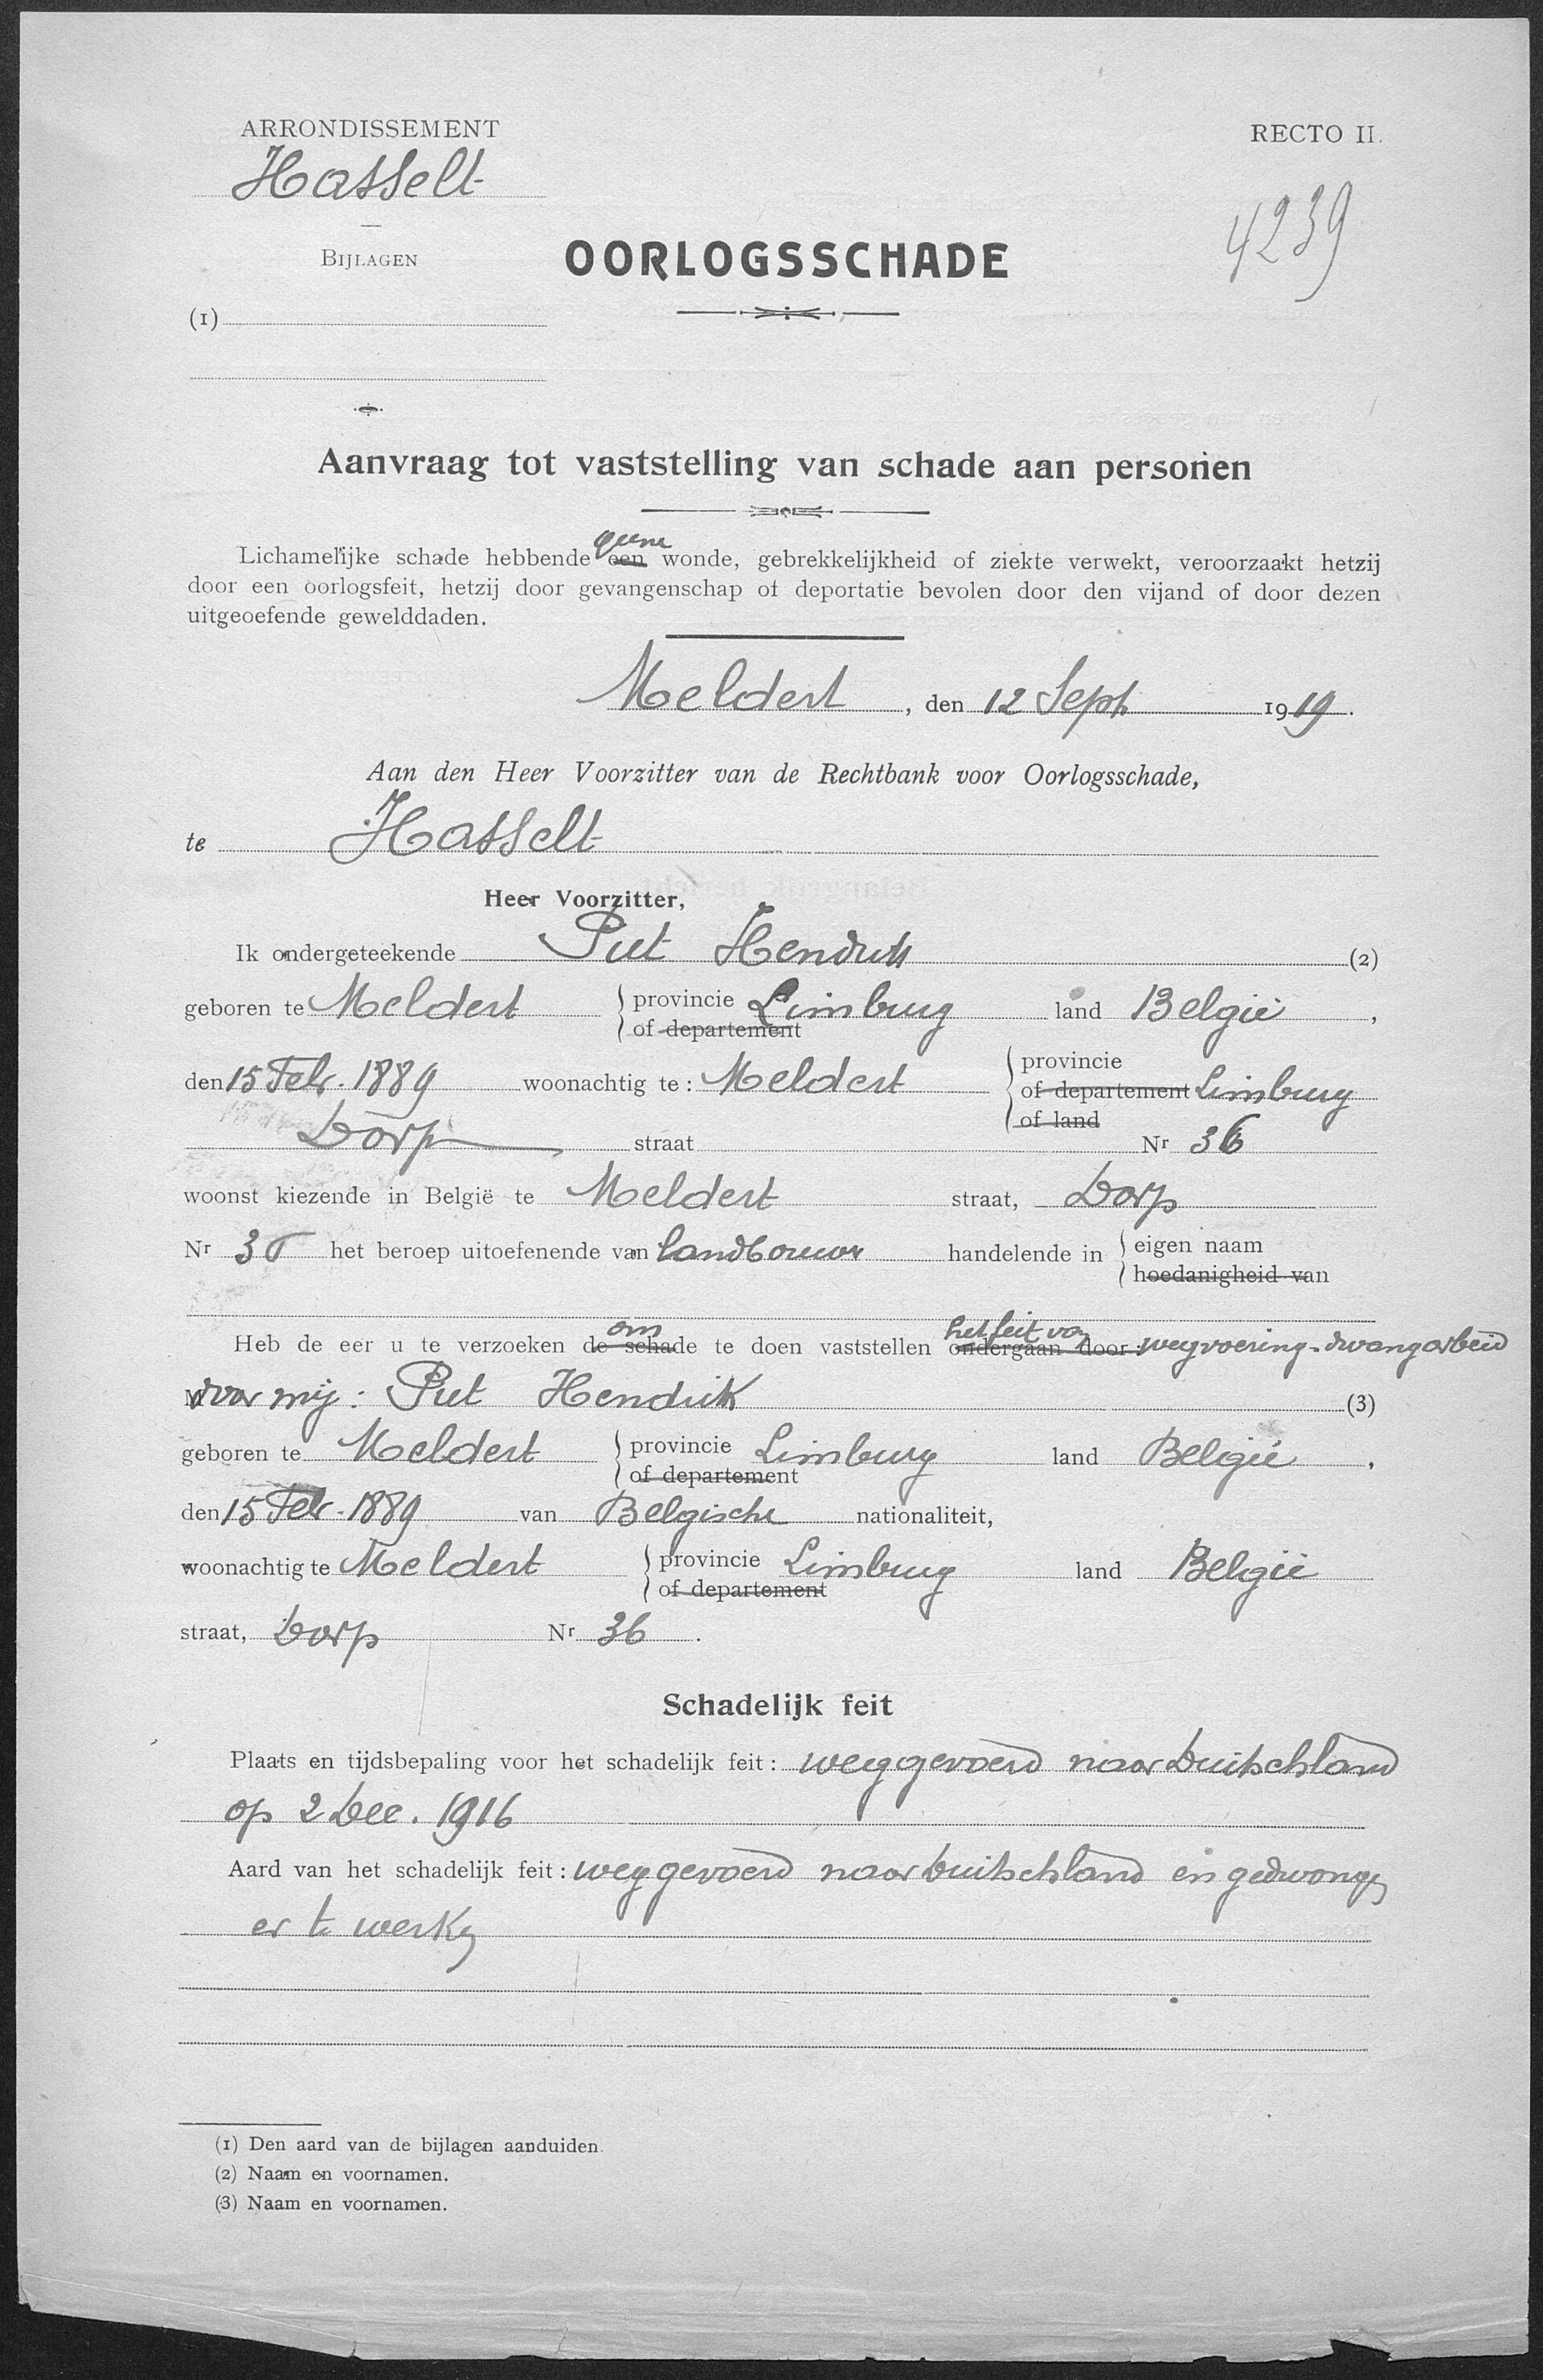 ARRONDISSEMENT
Hasselt
RECTO II.
4239
BIJLAGEN
OORLOGSSCHADE
(1)
Aanvraag tot vaststelling van schade aan personen
geene
Lichamelijke schade hebbende een wonde, gebrekkelijkheid of ziekte verwekt, veroorzaakt hetzij
door een oorlogsfeit, hetzij door gevangenschap of deportatie bevolen door den vijand of door dezen
uitgeoefende gewelddaden.
Meldert, den 12 Sept 1919.
Aan den Heer Voorzitter van de Rechtbank voor Oorlogsschade,
te Hasselt
Heer Voorzitter,
Ik ondergeteekende Put Hendrik (2)
geboren te Meldert provincie of departement Limburg land België,
den 15 Febr. 1889 woonachtig te: Meldert provincie of departement of land Limburg
Dorp straat Nr 36
woonst kiezende in België te Meldert straat, Dorp
Nr 36 het beroep uitoefenende van landbouwer handelende in eigen naam
hoedanigheid van
om het feit van
Heb de eer u te verzoeken de schade te doen vaststellen ondergaan door: wegvoering-dwangarbeid
voor mij: Put Hendrik (3)
geboren te Meldert provincie of departement Limburg land België,
den 15 Febr. 1889 van Belgische nationaliteit,
woonachtig te Meldert provincie of departement Limburg land België
straat, Dorp Nr 36.
Schadelijk feit
Plaats en tijdsbepaling voor het schadelijk feit: weggevoerd naar Duitschland
op 2 Dec. 1916
Aard van het schadelijk feit: weggevoerd naar Duitschland en gedwongen
er te werken
(1) Den aard van de bijlagen aanduiden.
(2) Naam en voornamen.
(3) Naam en voornamen.